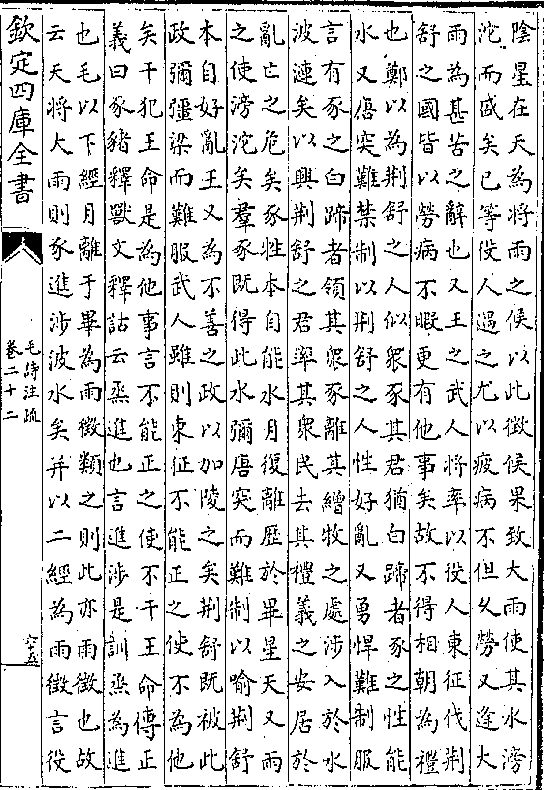 陰星在天為將雨之候以此徵候果致大雨使其水滂
沱而盛矣已等役人遇之尤以疲病不但久勞又逢大
雨為甚苦之辭也又王之武人將率以役人東征伐荆
舒之國皆以勞病不暇更有他事矣故不得相朝為禮
也鄭以為荆舒之人似衆豕其君猶白蹄者豕之性能
水又唐突難禁制以荆舒之人性好亂又勇悍難制服
言有豕之白蹄者領其衆豕離其繒牧之處涉入於水
波漣矣以興荆舒之君率其衆民去其禮義之安居於
亂亡之危矣豕性本自能水月復離歴於畢星天又雨
之使滂沱矣羣豕既得此水彌唐突而難制以喻荆舒
本自好亂王又為不善之政以加陵之矣荆舒既被此
政彌彊梁而難服武人雖則東征不能正之使不為他
矣干犯王命是為他事言不能正之使不干王命傳正
義曰豕豬釋獸文釋詁云烝進也言進涉是訓烝為進
也毛以下經月離于畢為雨徵類之則此亦雨徵也故
云天將大雨則豕進涉波水矣并以二經為雨徵言役
欽定四庫全書
毛詩注疏
卷二十二
六十五